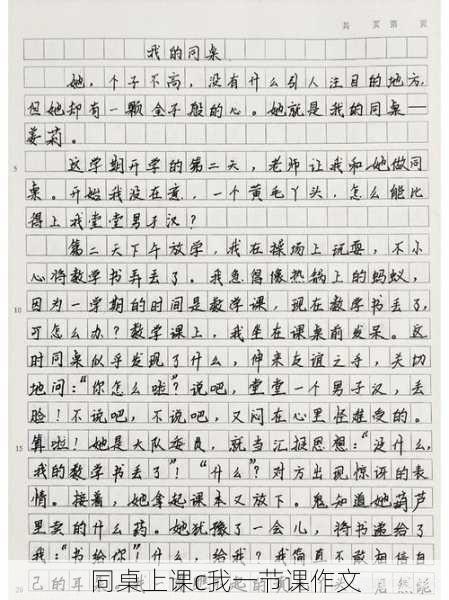 共 页 第 页
我的同桌
她，个子不高，没有什么引人注目的地方，
但她却有一颗金子般的心。她就是我的同桌——
姜莉。
5 这学期开学的第二天，老师让我和她做同
桌。开始我没在意，一个黄毛丫头，怎么能比
得上我堂堂男子汉？
第二天下午放学，我在操场上玩耍，不小
心将数学书弄丢了。我急得像热锅上的蚂蚁，
10 因为一学期的时间是数学课，现在数学书丢了，
可怎么办？数学课上，我坐在课桌前发呆。这
时同桌似乎发现了什么，伸来友谊之手，关切
地问：“你怎么啦？”说吧，堂堂一个男子汉，丢
脸！不说吧，不说吧，又闷在心里怪难受的。
15 算啦！她是大队委员，就当汇报思想：“没什么，
我的数学书丢了”！“什么”？对方出现惊讶的表
情。接着，她拿起课本又放下。鬼知道她葫芦
里卖的什么药。她犹豫了一会儿，将书递给了
我：“书给你”！什么，给我？我简直不敢相信自
己的耳
同桌上课c我一节课作文
居然能